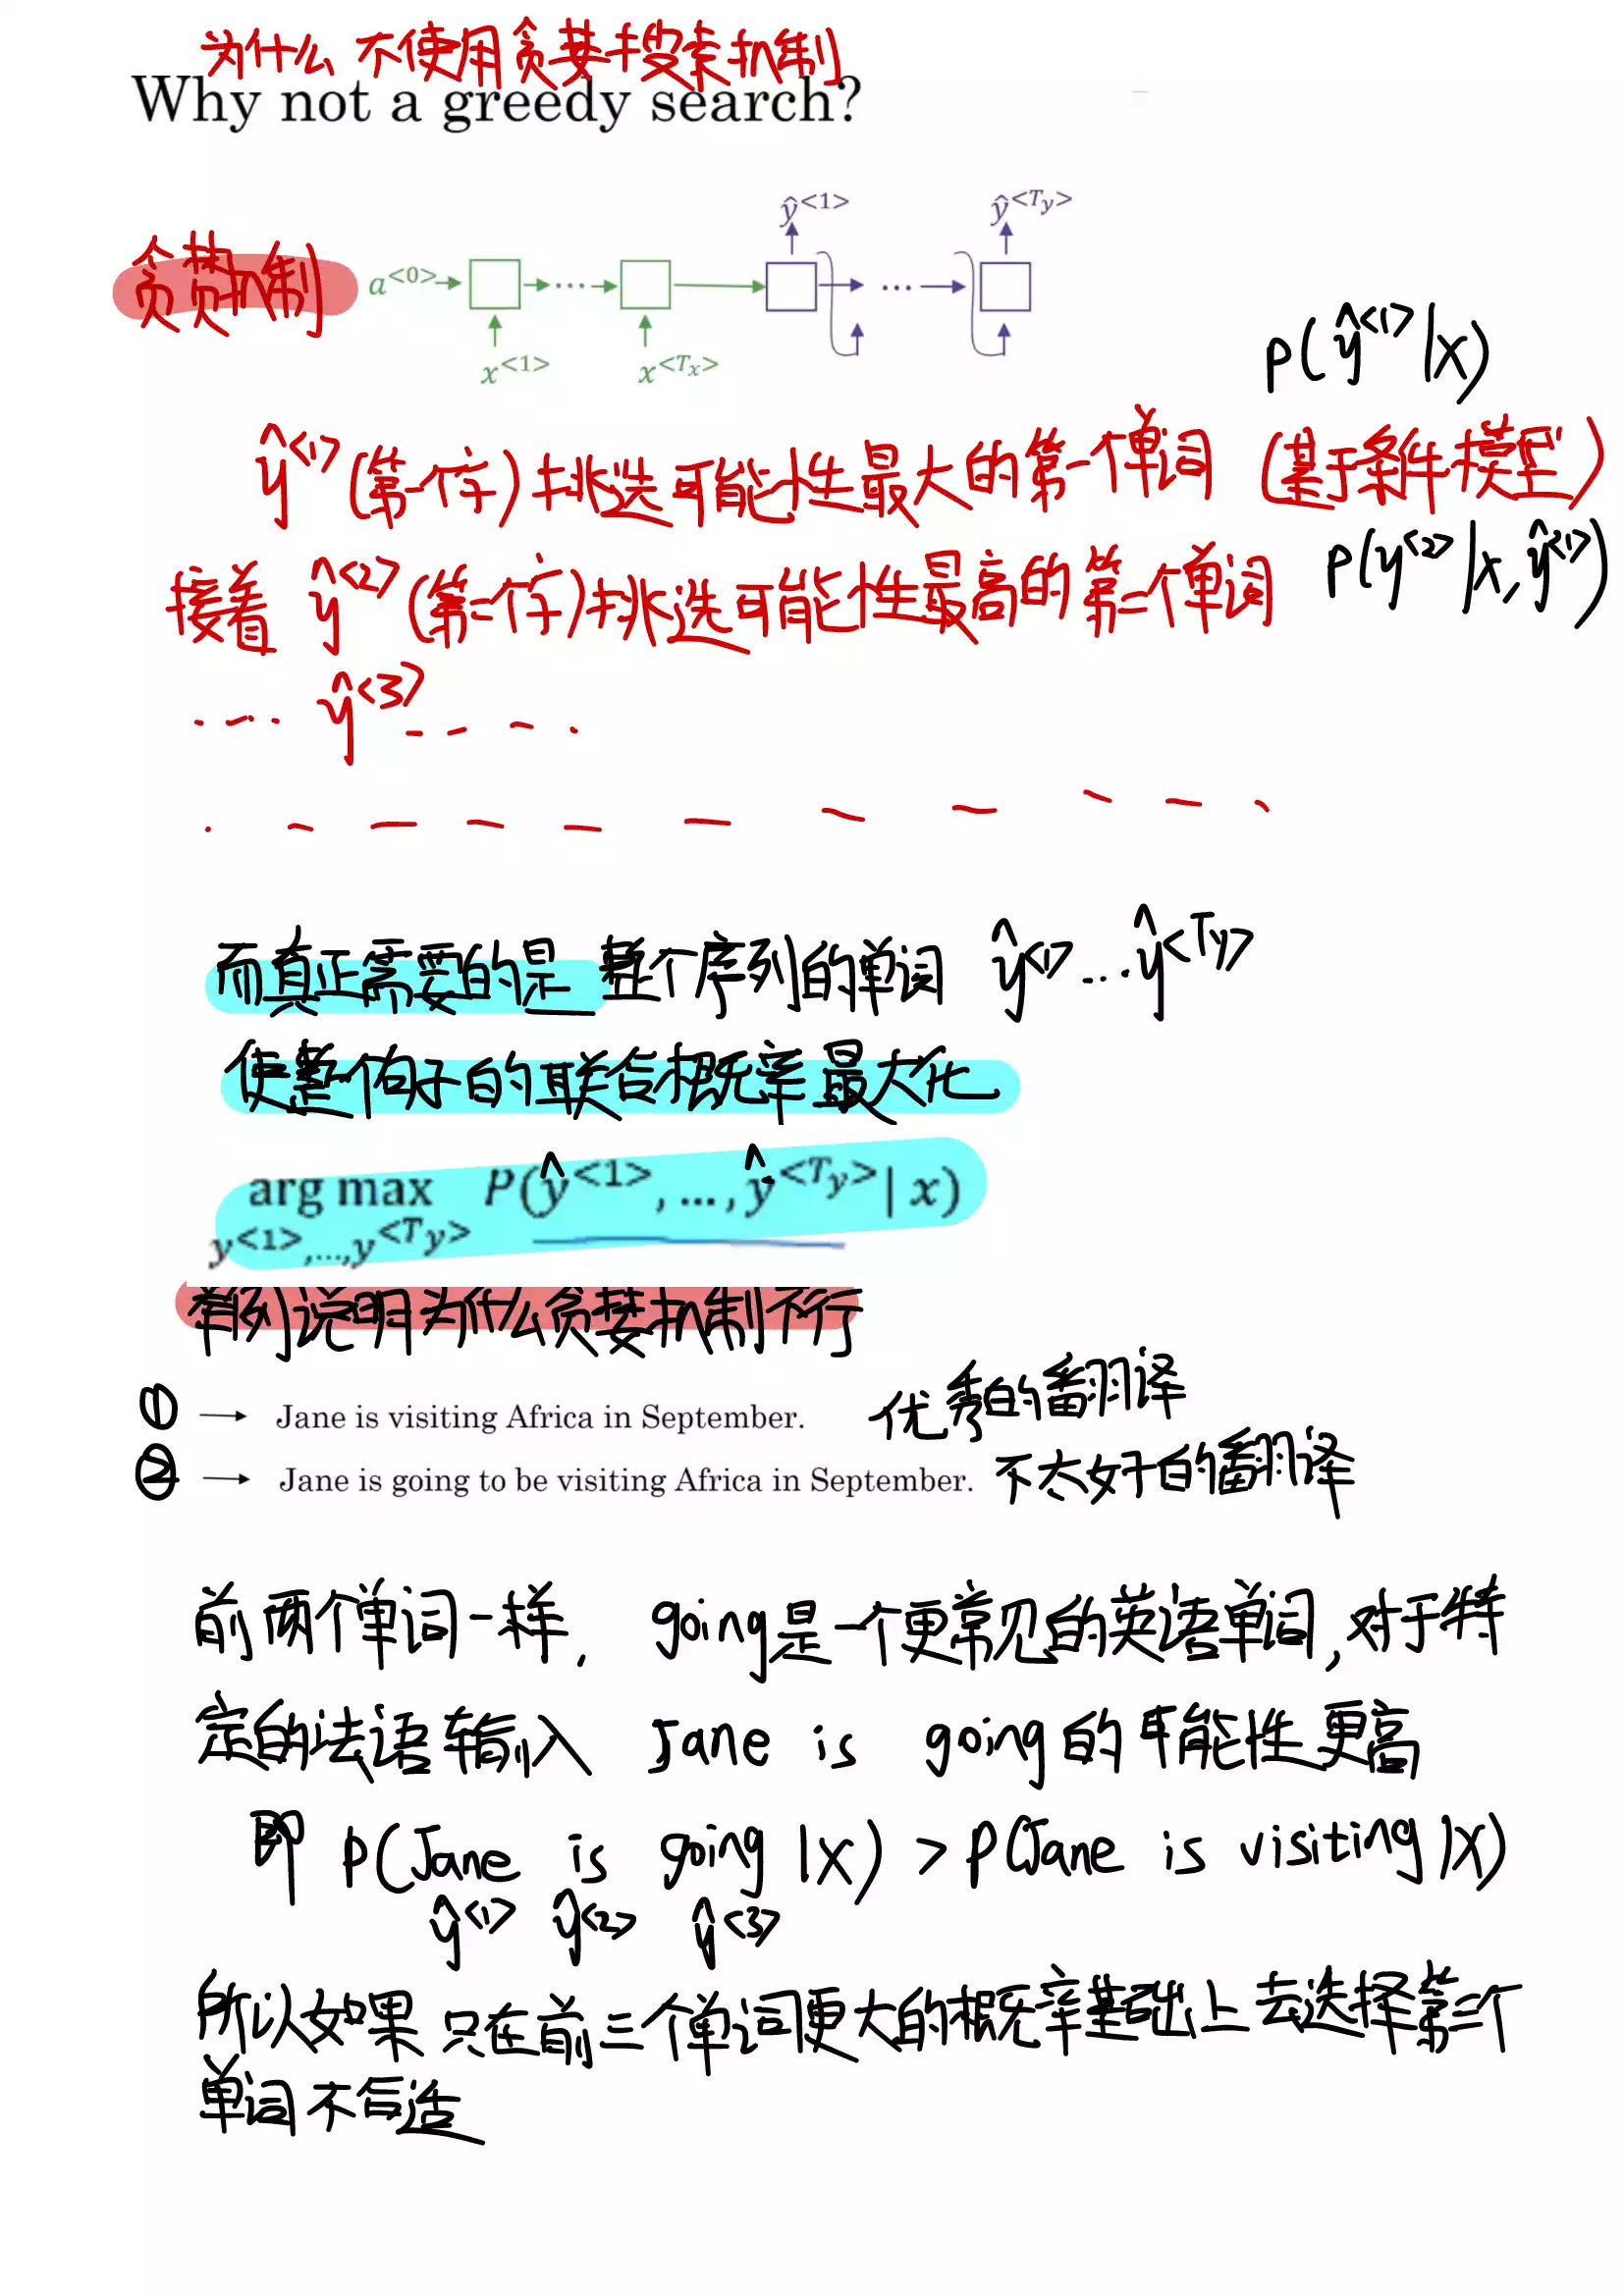 为什么 不使用贪婪搜索机制
Why not a greedy search?
ŷ<1> ŷ<Ty>
贪婪机制 a<0> → ⋯ → → ⋯ →
x<1> x<Tx>
P(ŷ<1>|x)
ŷ<1>(第一个字)挑选可能性最大的第一个单词 (基于条件模型)
接着 ŷ<2>(第二个字)挑选可能性最高的第二个单词 P(y<2>|x,ŷ<1>)
···· ŷ<3>·····
而真正需要的是 整个序列的单词 ŷ<1>...ŷ<Ty>
使整个句子的联合概率最大化
arg max P(ŷ<1>,…,ŷ<Ty>| x)
y<1>,…,y<Ty>
举列说明为什么贪婪机制不行
① → Jane is visiting Africa in September. 优秀的翻译
② → Jane is going to be visiting Africa in September. 不太好的翻译
前两个单词一样. going是一个更常见的英语单词,对于特
定的法语输入 Jane is going 的可能性更高
即 P(Jane is going |x) > P(Jane is visiting |x)
ŷ<1> ŷ<2> ŷ<3>
所以如果只在前三个单词更大的概率基础上去选择第三个
单词不合适